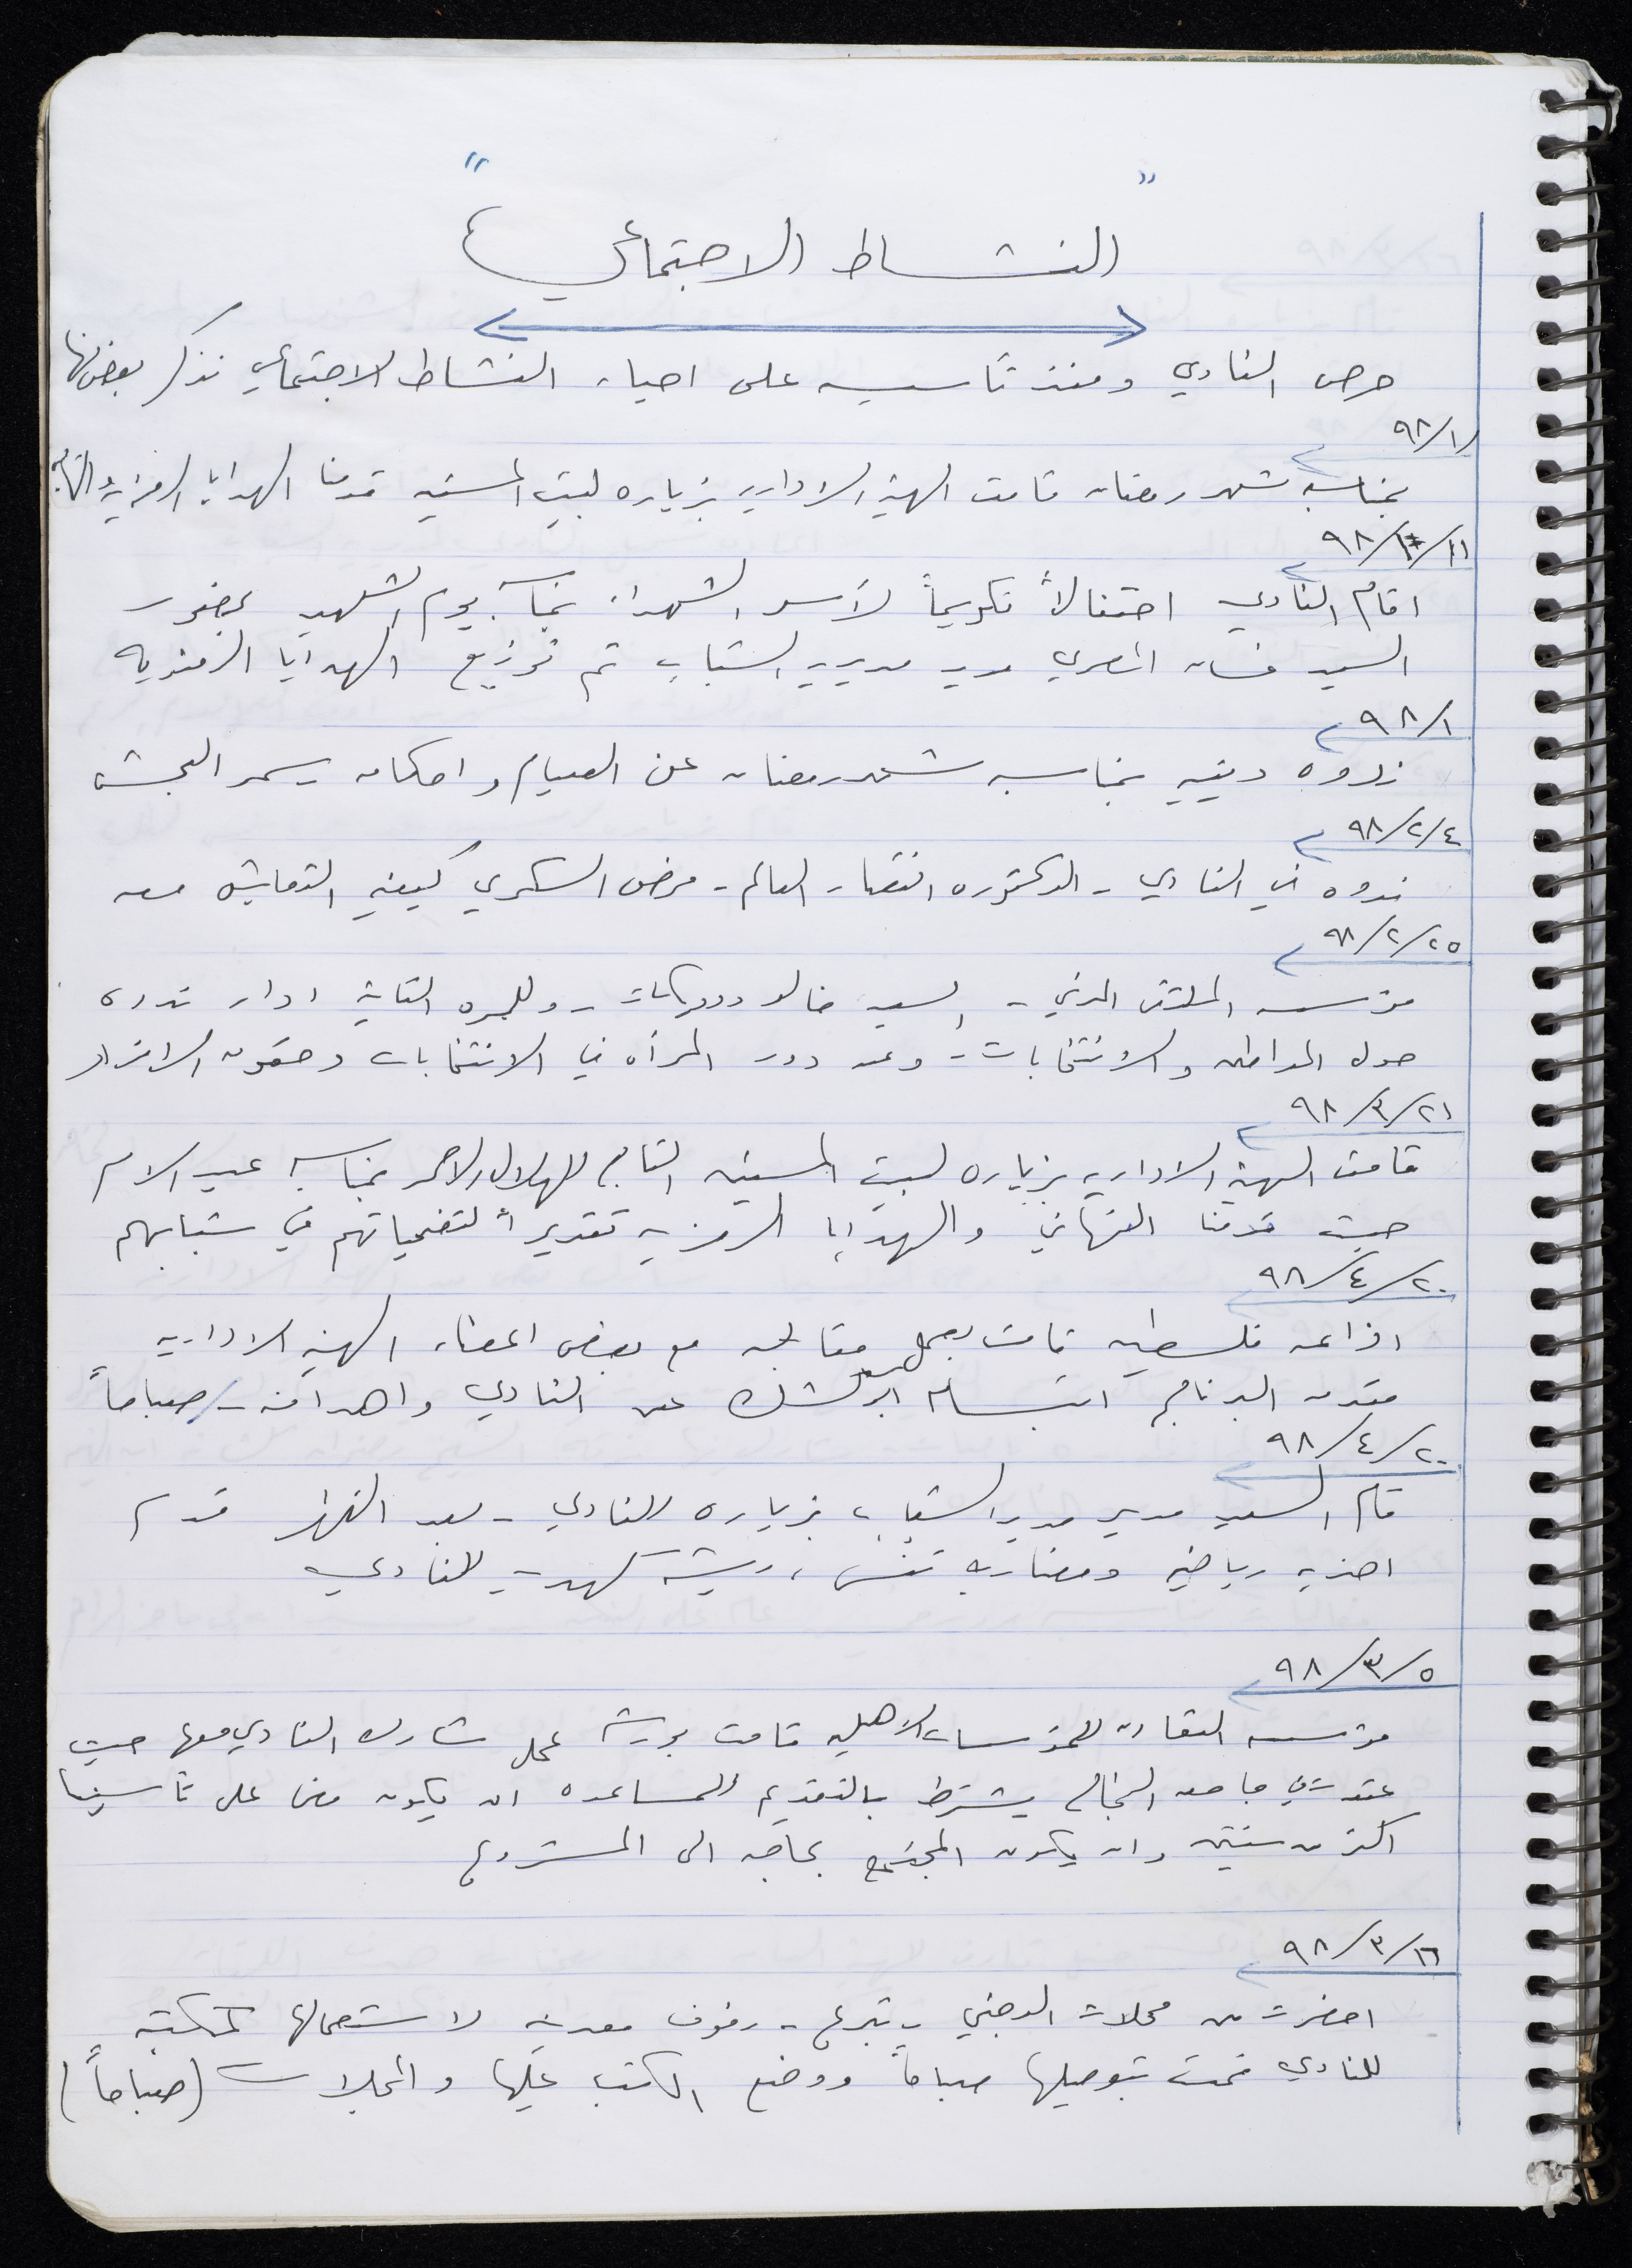 "النشاط الاجتماعي"
حرص النادي ومنذ تأسيسه على احياء النشاط الاجتماعي نذكر بعض منها
٩٨/١
بمناسبه شهر رمضان قامت الهيئة الاداريه بزياره لبيت المسنيين قدمنا الهدايا الرمزيه
٩٨/١/١١
اقام النادي احتفالاً تكريمياً لأسر الشهداء بمناسبة يوم الشهيد بحضور
السيد غسان المصري مدير مديرية الشباب تم توزيع الهدايا الرمزيه
٩٨/١
ندوه دينيه بمناسبه شهر رمضان عن الصيام واحكامه سمر البحش
٩٨/٢/٤
ندوه في النادي - الدكتوره انتصار العالم - مرض السكري كيفية التعايش معه
٩٨/٢/٢٥
مؤسسه الملتقى المدني - السيد خالد دويكات - وللمره الثانية ادار ندوه
حول المواطن والانتخابات - وعن دور المرأه في الانتخابات وحقوق الافراد
٩٨/٣/٢١
قامت الهيئة الاداريه بزياره لبيت المسنين التابع للهلال الاحمر بمناسبة عيد الام
حيث قدمنا التهاني والهدايا الرمزيه تقديراً لتضحياتهم في شبابهم
٩٨/٤/٢٠
اذاعه فلسطين قامت بعمل مقابله مع بعض اعضاء الهيئة الاداريه
مقدمه البرنامج ابتسام عن النادي واهدافه - صباحاً
٩٨/٤/٢٠
قام السيد مدير مديرية الشباب بزياره للنادي - بعد الظهر قدم
احذيه رياضيه ومضارب تنس، ريشه للنادي
٩٨/٣/٥
مؤسسه التعاون للمؤسسات الاهليه قامت بورشة عمل شارك النادي معها حيث
عقدت في جامعه النجاح يشترط بالتقديم للمساعده ان يكون مضى على تأسيسها
اكثر من سنتين وان يكون المجتمع بحاجه الى المشروع
٩٨/٣/١٦
احضرت من محلات - تبرع - رفوف معدنيه لاستعمالها كمكتبه
للنادي قمت بتوصيلها صباحاً ووضع الكتب عليها والمجلات (صباحاً)